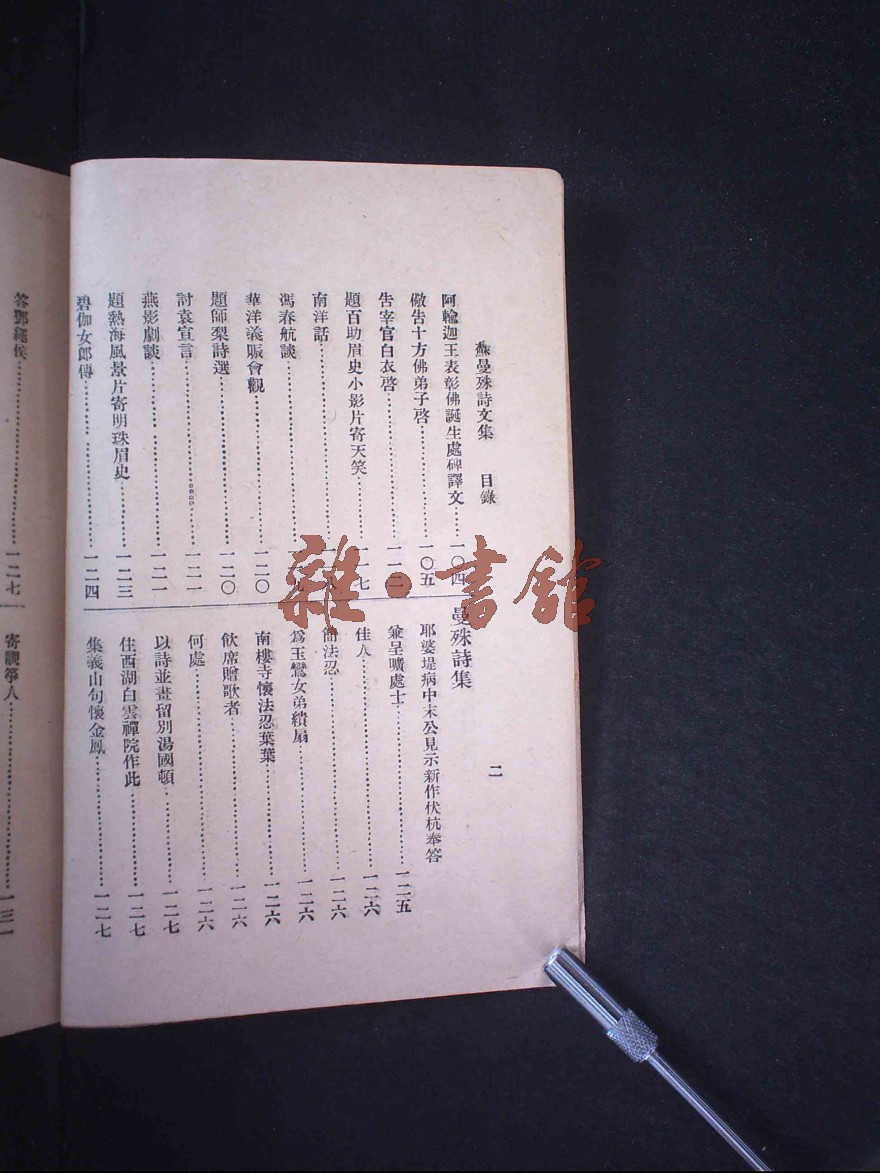 蘇曼殊詩文集　目錄
二
阿輸迦王表彰佛誕生處碑譯文……一〇四
儆告十方佛弟子啓……一〇五
告宰官白衣啓……一一二
題百助眉史小影片寄天笑……一一七
南洋話……一一八
馮春航談
華洋義賑會觀……一二〇
題師梨詩選……一二〇
討袁宣言……一二一
燕影劇談……一二一
題熱海風景片寄明珠眉史……一二三
碧伽女郎傳……一二四
曼殊詩集
耶婆堤病中末公見示新作伏杭奉答
兼呈曠處士……一二五
佳人……一二六
簡法忍……一二六
爲玉鸞女弟繢扇……一二六
南樓寺懷法忍葉葉……一二六
飲席贈歌者……一二六
何處……一二六
以詩並畫留別湯國頓……一二七
住西湖白雲禪院作此……一二七
集義山句懷金鳳……一二七
答鄧繩侯……一二七
寄調箏人……一三一
雜·書館